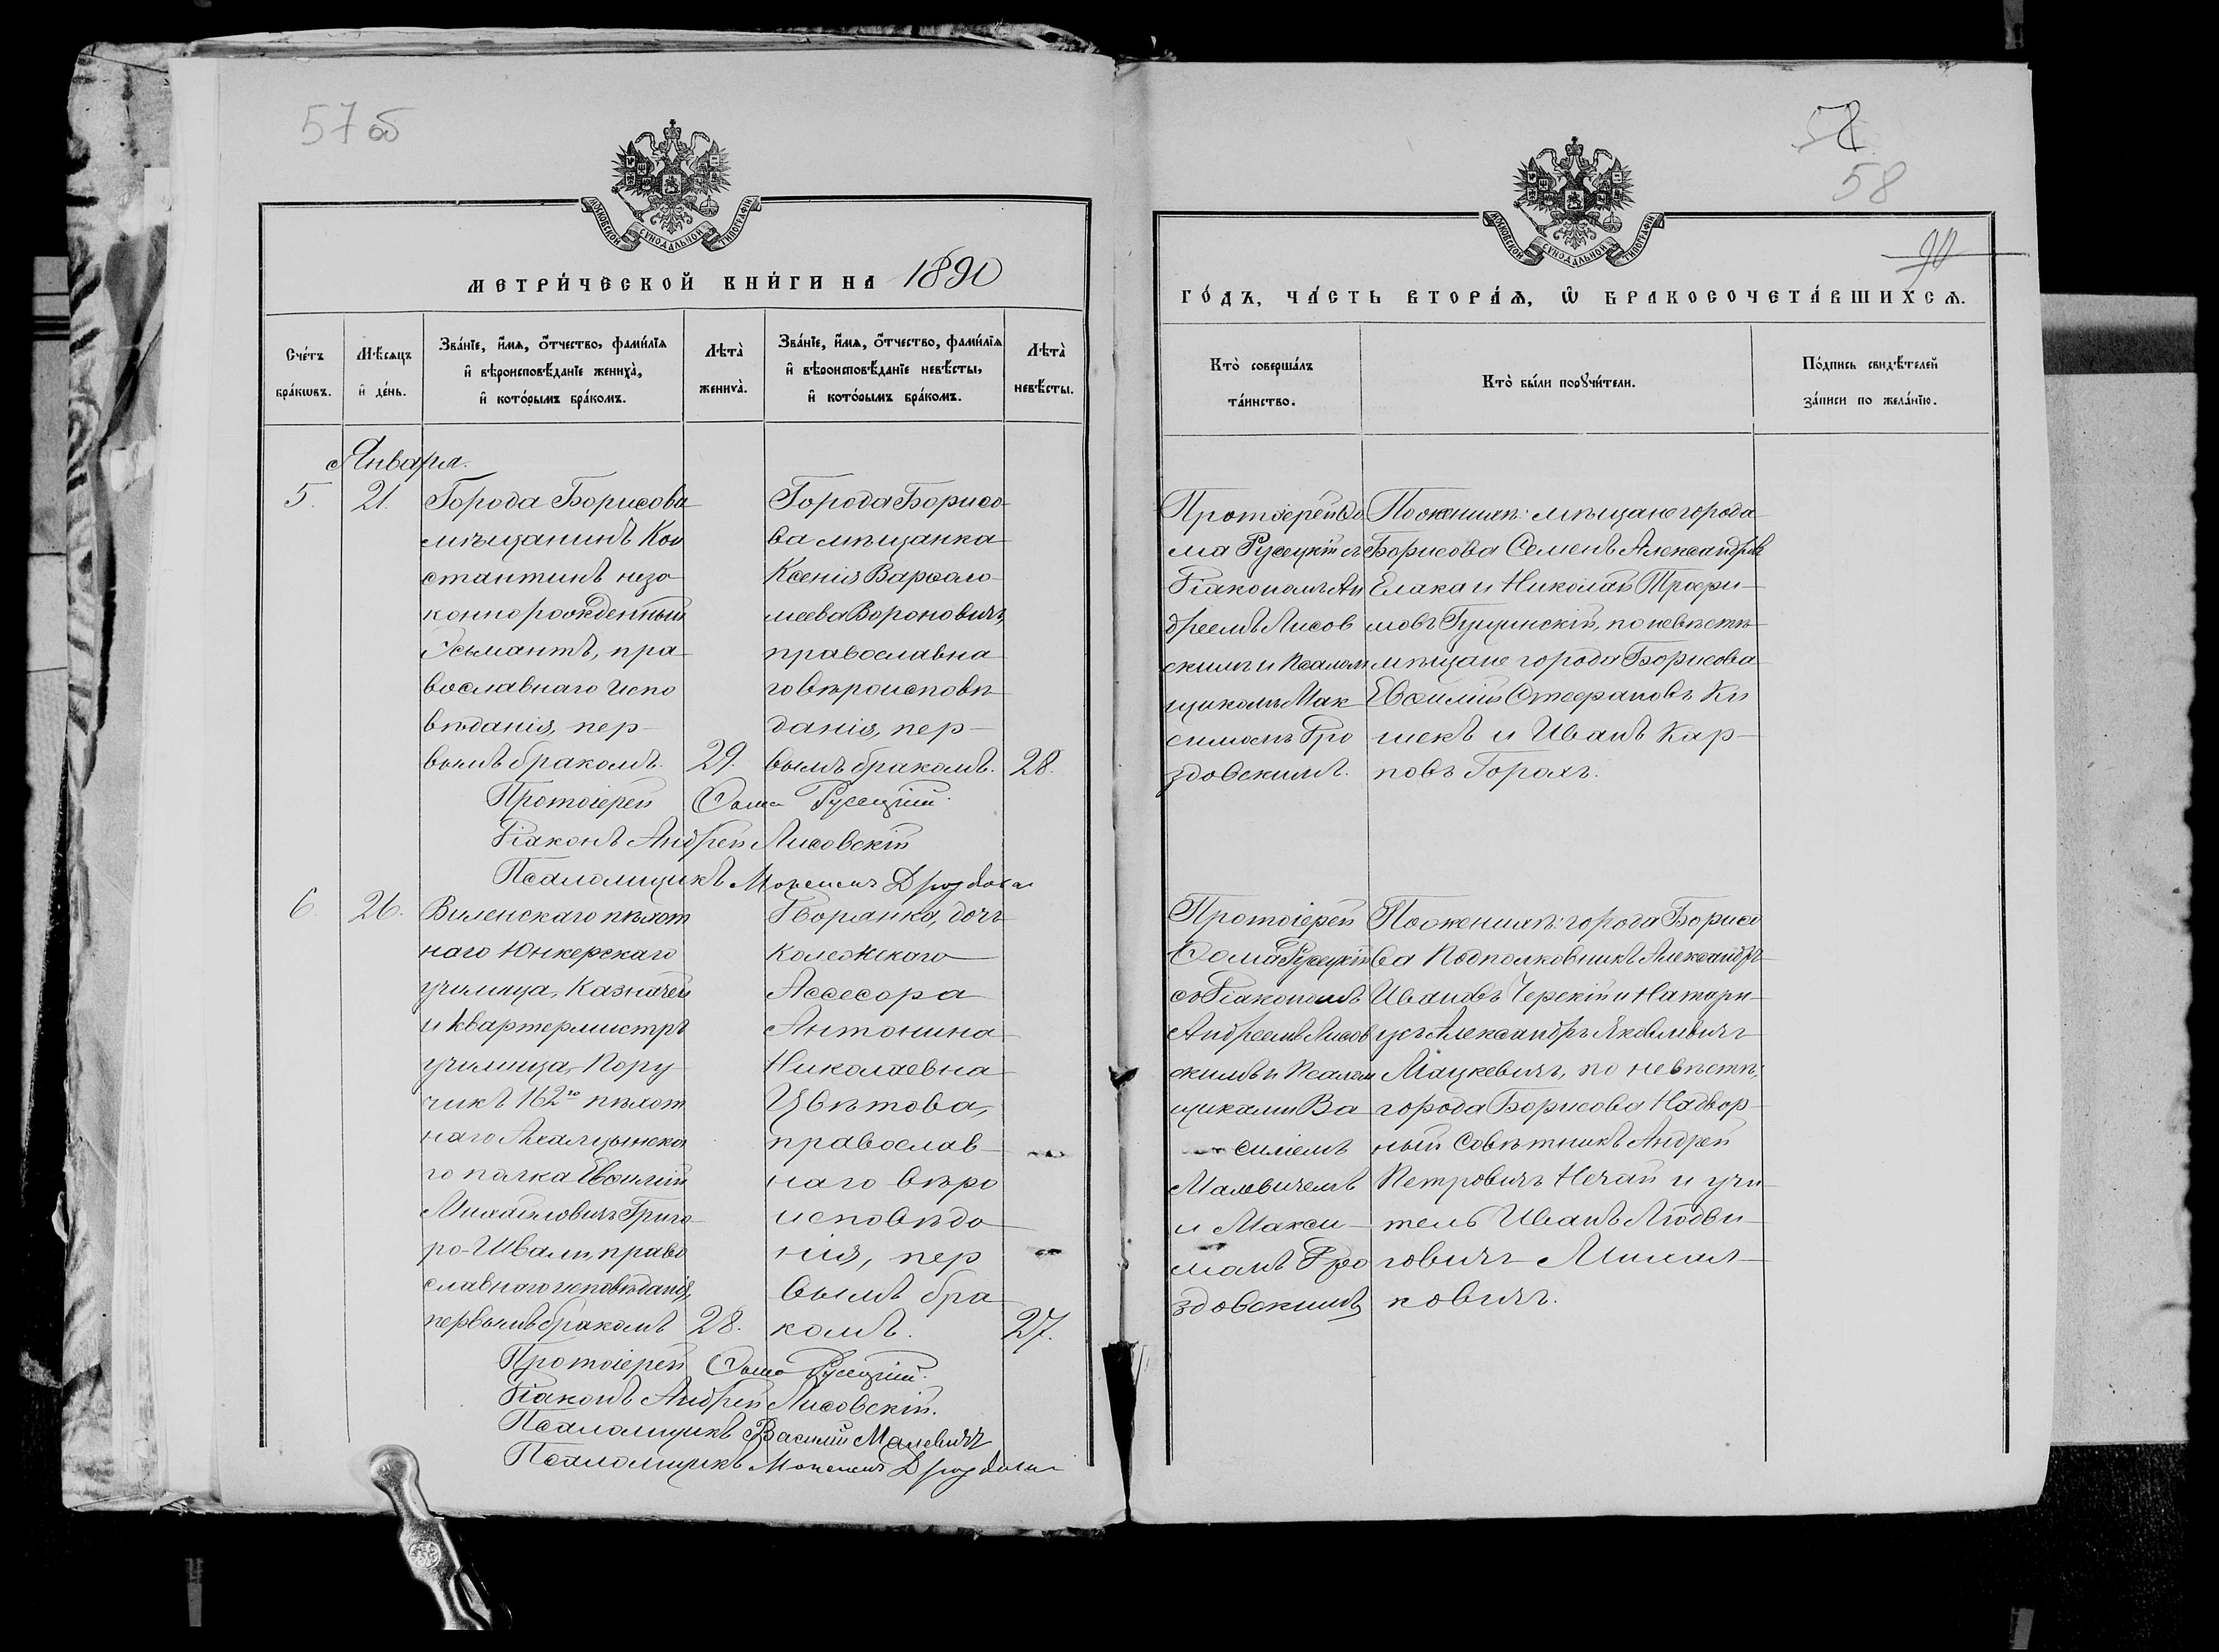 57 об
МОСКОВСКОЙ СѴНОДАЛЬНОЙ ТИПОГРАФІИ
МЕТРИ́ЧЕСКОЙ КНИ́ГИ НА 1890
Сче́тъ бра́кωвъ.
Мѣ́сѧцъ и҆ де́нь.
Зва́нїе, и҆́мѧ, ѻ҆́тчество, фами́лїѧ и҆ вѣроисповѣ́данїе жениха̀, и҆ кото́рымъ бра́комъ.
Лѣта̀ жениха̀.
Зва́нїе, и҆́мѧ, ѻ҆́тчество, фами́лїѧ и҆ вѣроисповѣ́данїе невѣ́сты, и҆ кото́рымъ бра́комъ.
Лѣта̀ невѣ́сты.
Января.
5.
21.
Города Борисова
мѣщанинъ Кон
стантинъ незо
коннорожденный
Усьмантъ, пра
вославнаго испо
вѣданія, пер-
вымъ бракомъ.
29.
Города Борисо-
ва мѣщанка
Ксенія Варѳоло-
меева Вороновичъ,
православна
го вѣроисповѣ
данія, пер-
вымъ бракомъ.
28.
Протоіерей Ѳома Русецкій.
Діаконъ Андрей Лисовскій
Псаломщикъ
6.
26.
Виленскаго пѣхот
наго Юнкерскаго
училища, Казначей
и квартермистръ
училища, Пору
чикъ 162го пѣхот
наго Ахалцынска
го полка Евѳимій
Михайловичъ Григо-
ро-Швали, право
славнаго исповѣданія,
первымъ бракомъ
28.
Дворянка, дочь
Колежскаго
Ассесора
Антонина
Николаевна
Цвѣтова,
православ-
наго вѣро
исповѣда
нія, пер
вымъ бра
комъ.
27.
Протоіерей Ѳома Русецкій.
Діаконъ Андрей Лисовскій.
Псаломщикъ Василій Малевичъ
Псаломщикъ
58
90
МОСКОВСКОЙ СѴНОДАЛЬНОЙ ТИПОГРАФІИ
ГО́ДЪ, ЧА́СТЬ ВТОРА́Ѧ, Ѽ БРАКОСОЧЕТА́ВШИХСѦ.
Кто̀ соверша́лъ та́инство.
Кто̀ бы́ли порꙋчи́тели.
По́дпись свидѣ́телей за́писи по жела́нїю.
Протоіерей Ѳо
ма Русецкій съ
Діакономъ Ан
дреемъ Лисов
скимъ и Псалом
щикомъ Мак
симомъ Дро
здовскимъ.
По женихѣ: мѣщане города
Борисова Семенъ Александровъ
Елака и Николай Трофи-
мовъ Гущинскій, по невѣстѣ
мѣщане города Борисова
Евѳимій Стефановъ Ки
шекъ и Иванъ Кар-
повъ Горохъ.
Протоіерей
Ѳома Русецкій
съ Діакономъ
Андреемъ Лисов
скимъ и Псалом
щиками Ва
силіемъ
Малевичемъ
и Макси-
момъ Дро
здовскимъ
По женихѣ: города Борисо
ва Подполковникъ Александръ
Ивановъ Черскій и Натари-
усъ Александръ Яковлевичъ
Мацкевичъ, по невѣстѣ,
города Борисова Надвор-
ный Совѣтникъ Андрей
Петровичъ Нечай и учи
тель Иванъ Людви-
говичъ Михал-
ковичъ.